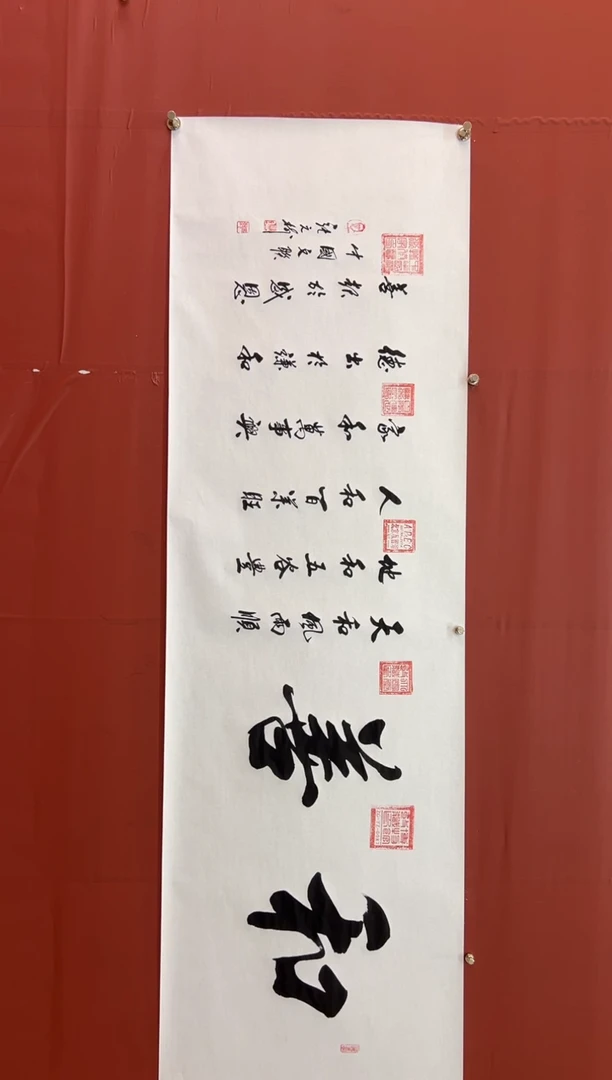 和善
天和風雨順
地和五谷豐
人和百業旺
家和萬事興
德出於謙和
善報於感恩
中國文聯